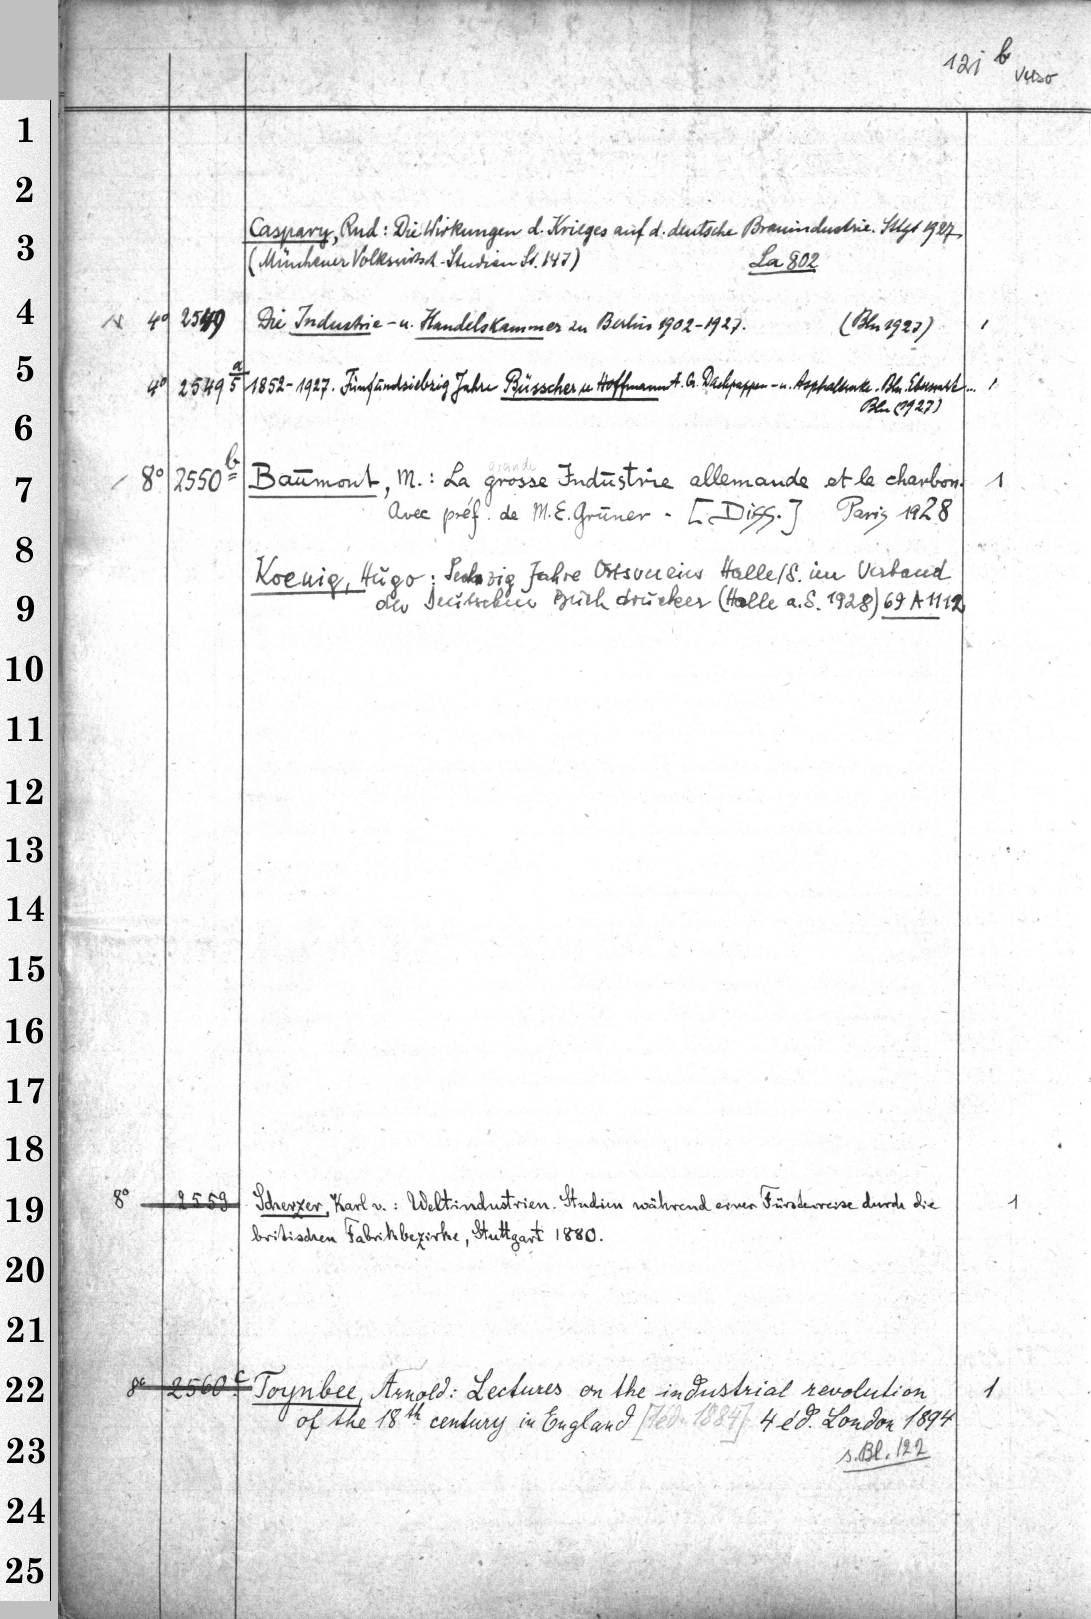 121 b verso
1
2
Caspary, Rud: Die Wirkungen d. Krieges auf d. deutsche Brauindustrie. Sttgt 1927.
3
(Münchener Volkswirtsch. Studien St. 147) La 802
4
4° 2549 Die Industrie- u. Handelskammer zu Berlin 1902-1927. (Bln 1927) 1
5
4° 2549 a/5 1852-1927. Fünfundsiebzig Jahre Büsscher u Hoffmann A. G. Dachpappen- u. Asphaltwerke. Bln. Eberswalde... 1
Bln (1927)
6
8° 2550 b Baumont, M.: La grosse Industrie allemande et le charbon. 1
grande
7
Avec préf. de M. E. Gruner. - [Diss.] Paris 1928
8
Koenig, Hugo: Sechzig Jahre Ortsverein Halle/S. im Verband
9
der Deutschen Buchdrucker (Halle a.S. 1928) 69 A 1112
10
11
12
13
14
15
16
17
18
19
8° 2559 Scherzer, Karl v.: Weltindustrien. Studien während einer Fürstenreise durch die 1
britischen Fabrikbezirke, Stuttgart 1880.
20
21
22
8° 2560 c Toynbee, Arnold: Lectures on the industrial revolution 1
of the 18th century in England [1 éd. 1884] 4 éd. London 1894
23
s. Bl. 122
24
25